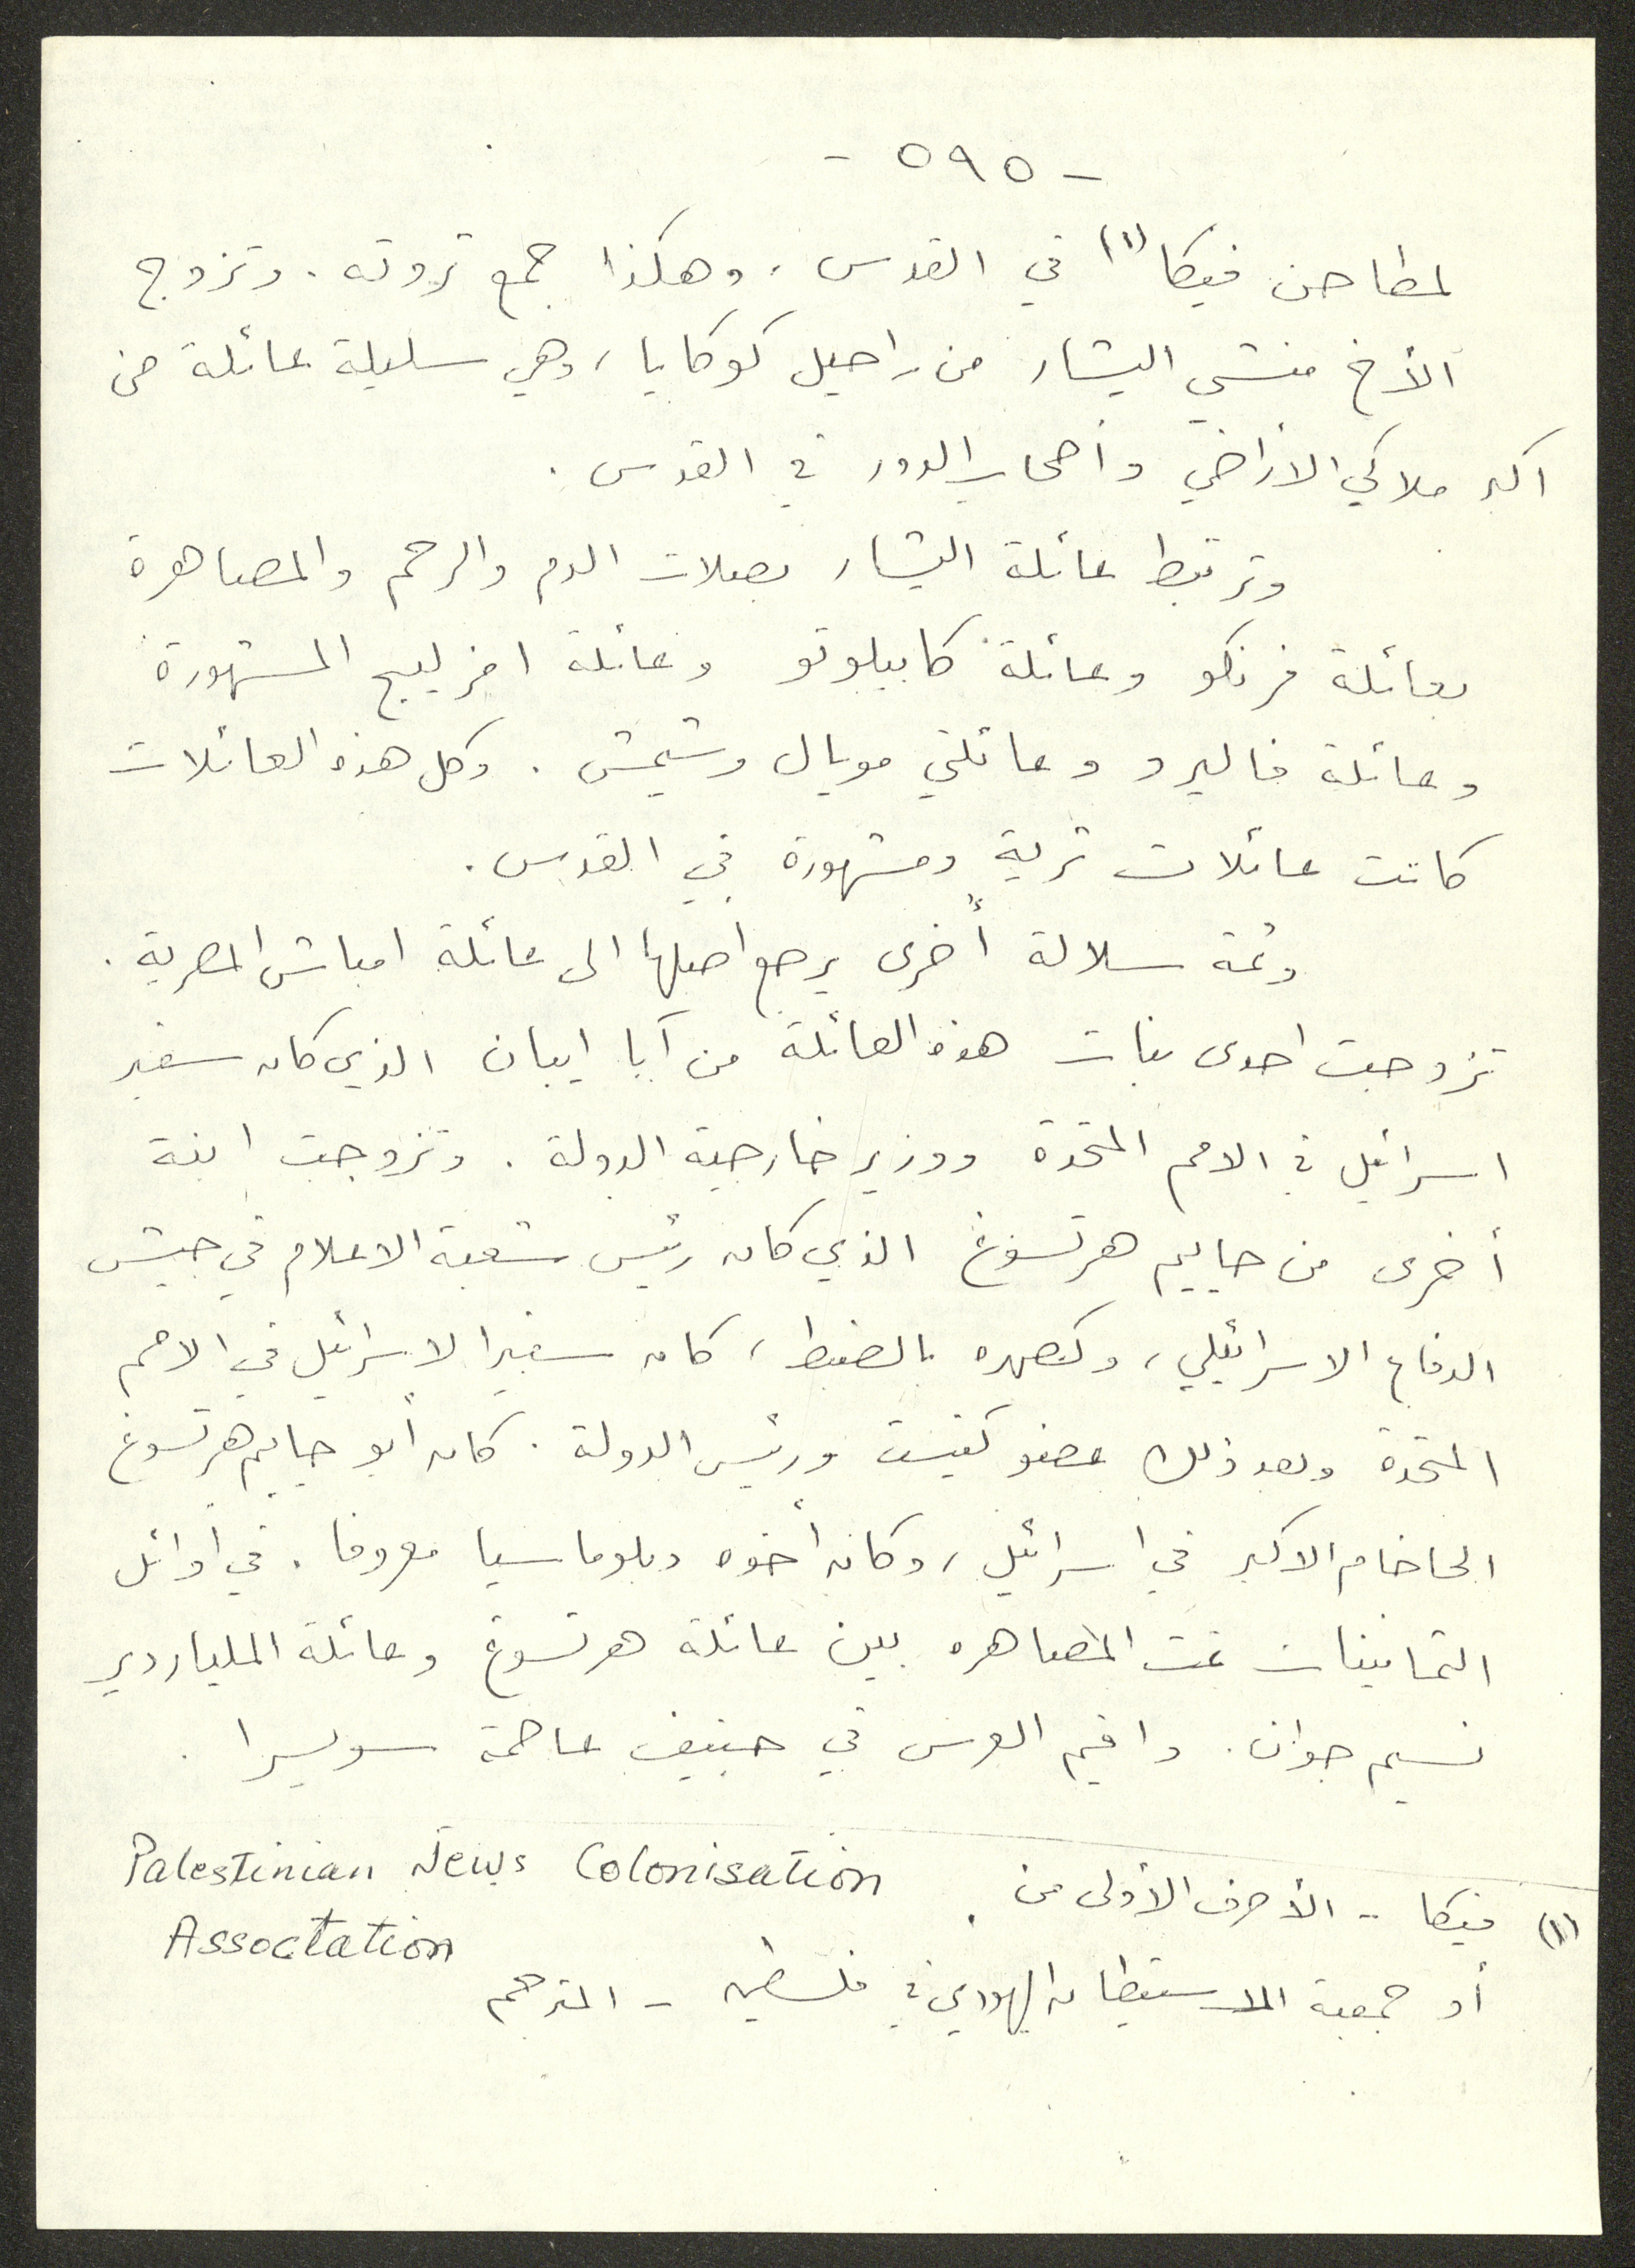 - ٥٩٥ -
لمطاحن فيكا (١) في القدس، وهكذا جمع ثروته. وتزوج
الأخ منشي اليشار من راحيل كوكايا، وهي سليلة عائلة من
اكبر ملاكي الأراضي وأصحاب الدور في القدس.
وترتبط عائلة اليشار بصلات الدم والرحم والمصاهرة
بعائلة فرنكو وعائلة كابيلوتو وعائلة افريليج المشهورة
وعائلة فاليرو وعائلتي مويال وشيمش. وكل هذه العائلات
كانت عائلات ثرية ومشهورة في القدس.
وثمة سلالة أخرى يرجع اصلها الى عائلة امباش المصرية.
تزوجت احدى بنات هذه العائلة من آبا ايبان الذي كان سفير
اسرائيل في الامم المتحدة ووزير خارجية الدولة. وتزوجت ابنة
أخرى من حاييم هرتسوغ الذي كان رئيس شعبة الاعلام في جيش
الدفاع الاسرائيلي، وكصهره بالضبط، كان سفيرا لاسرائيل في الامم
المتحدة وبعد ذلك عضو كنيست ورئيس الدولة. كان أبو حاييم هرتسوغ
الحاخام الاكبر في اسرائيل، وكان أخوه دبلوماسيا معروفا. في أوائل
الثمانينات تمت المصاهره بين عائلة هرتسوغ وعائلة الملياردير
نسيم جوان. واقيم العرس في جنيف عاصمة سويسرا.
(١) فيكا - الأحرف الأولى من Palestinian Jews Colonisation
Association
أو جمعية الاستيطان اليهودي في فلسطين - المترجم